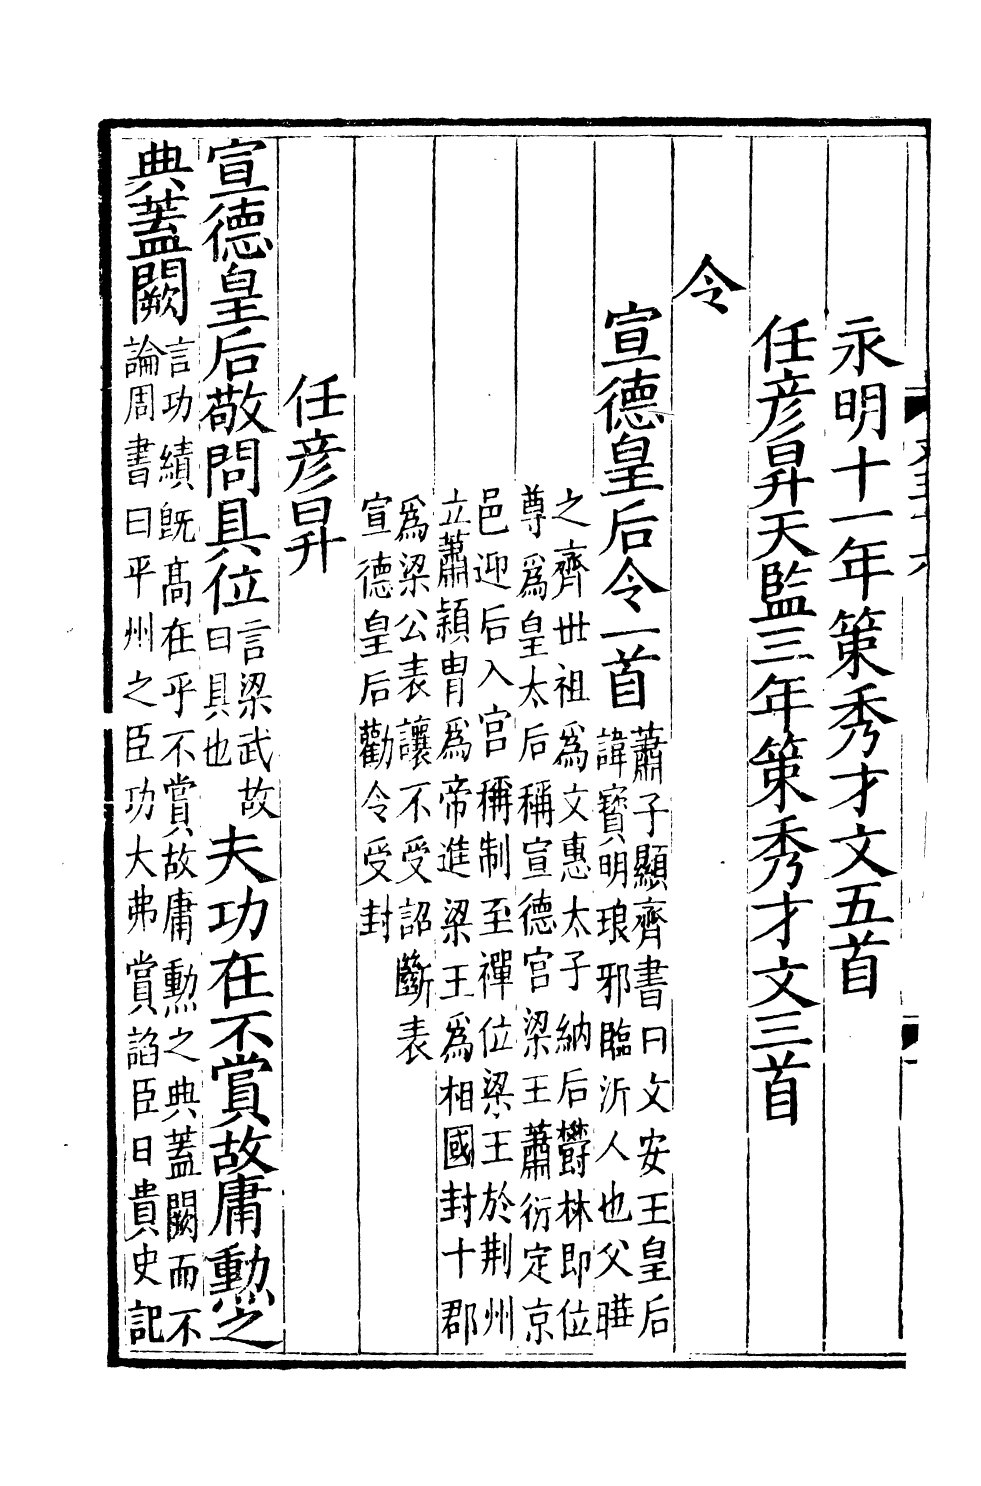 永明十一年策秀才文五首
任彥昇天監三年策秀才文三首
令
宣德皇后令一首
蕭子顯齊書曰文安王皇后
諱寶明琅邪臨沂人也父曄
之齊世祖爲文惠太子納后欝林即位
尊爲皇太后稱宣德宮梁王蕭衍定京
邑迎后入宮稱制至禪位梁王於荆州
立蕭穎冑爲帝進梁王爲相國封十郡
爲梁公表讓不受詔斷表
宣德皇后勸令受封
任彥昇
宣德皇后敬問具位
言梁武故
曰具也
夫功在不賞故庸勳之
典蓋闕
言功績旣髙在乎不賞故庸勳之典蓋闕而不
論周書曰平州之臣功大弗賞諂臣日貴史記